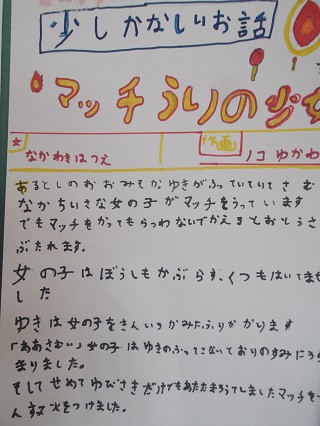 少しかなしいお話
マッチうりの少女
なかわきはつえ
作画
ノコ ゆかわ
あるとしのおおみそか ゆきがふっていていてさむ
なかちいさな女の子がマッチをうっています
でもマッチをかってもらっわないでかえるとおとうさ
ぶたれます。
女の子はぼうしもかぶらず、くつもはいてませ
した
ゆきは女の子をきんいろかみにふりかかります
「ああさむい」女の子はゆきのふってこないておりのすみにう
まりました。
そしてせめてゆびさきだけでもあたたまろうてしましたマッチを
んすて火をつけました。